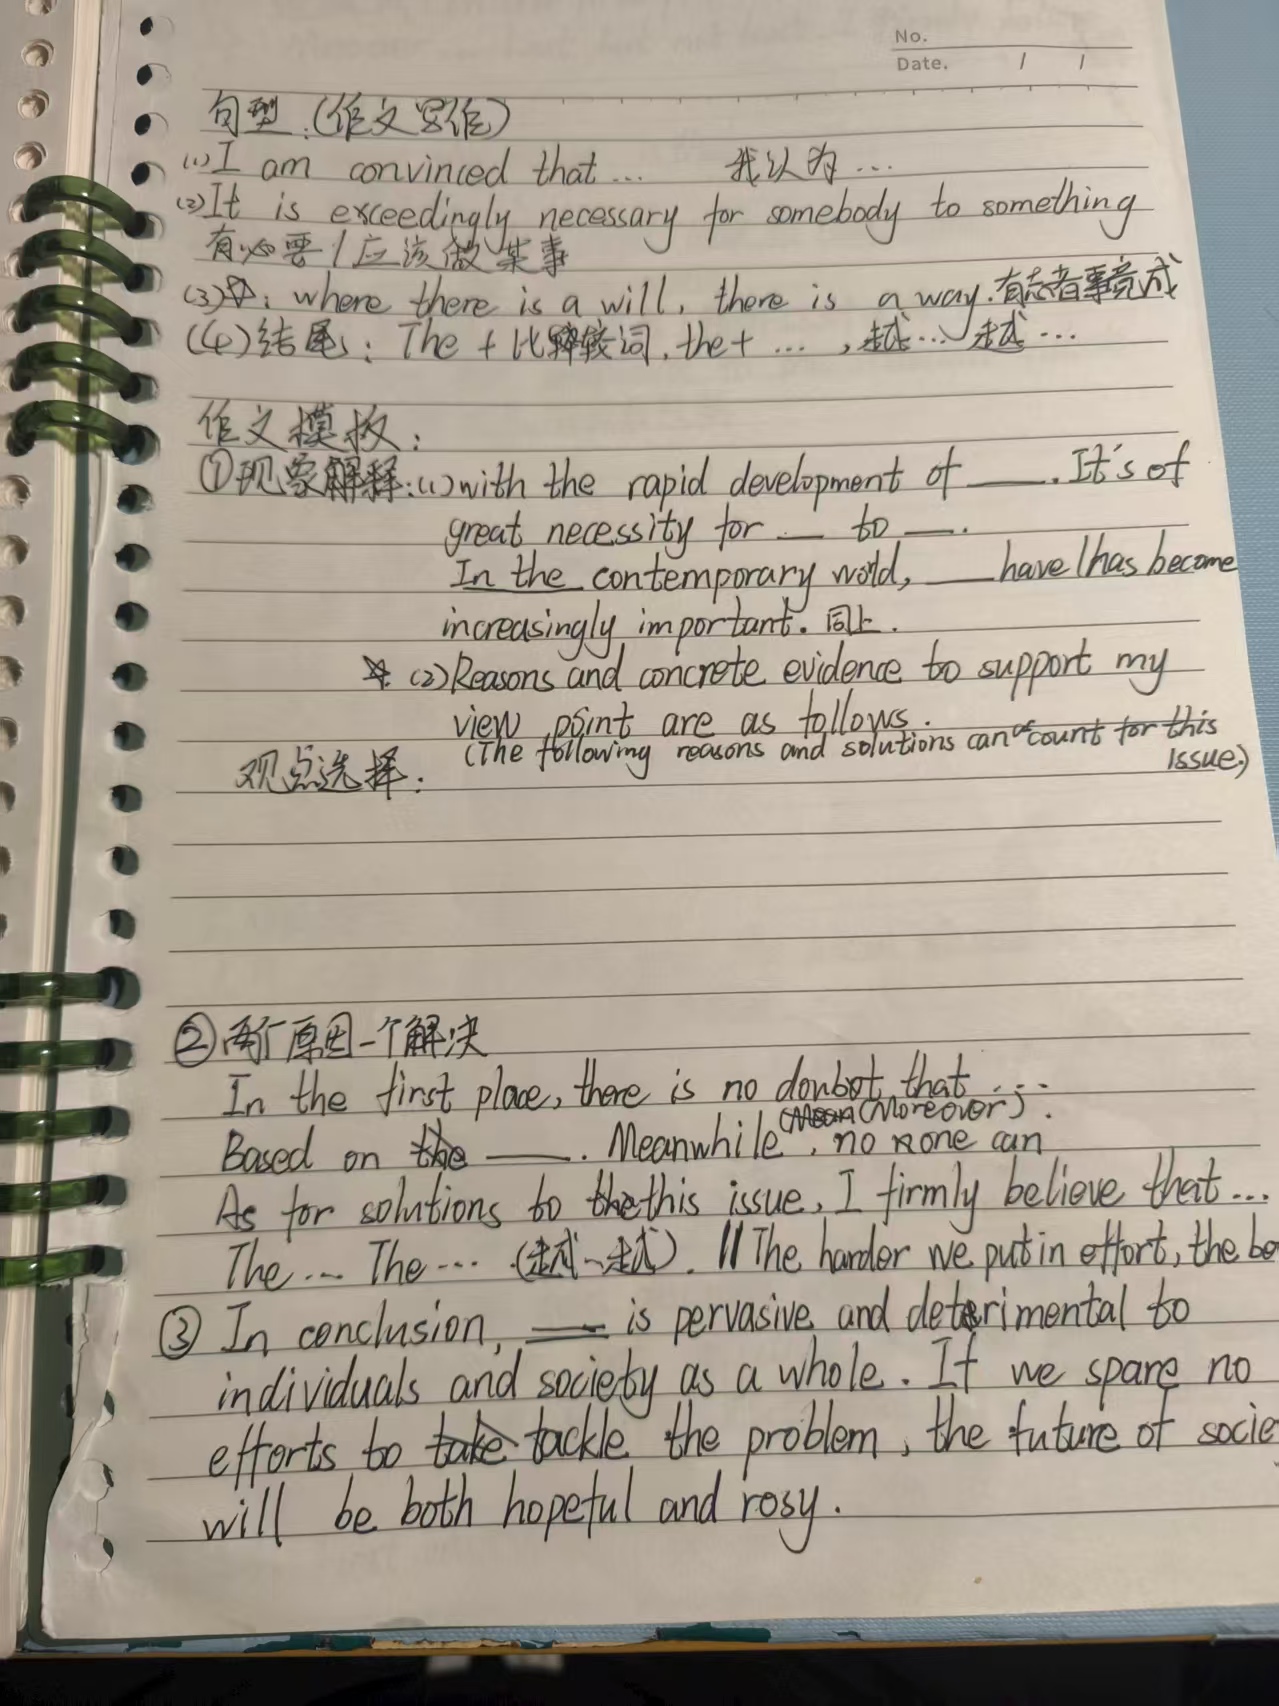 No.
Date. / /
句型:(作文写作)
(1)I am convinced that... 我认为...
(2)It is exceedingly necessary for somebody to something
有必要/应该做某事
(3)☆: where there is a will, there is a way.有志者事竟成
(4)结尾: The + 比较词, the+ ..., 越...越...
作文模板:
①现象解释:(1)with the rapid development of ___. It's of
great necessity for __ to __.
In the contemporary world, ___ have/has become
increasingly important. 同上.
☆ (2)Reasons and concrete evidence to support my
view point are as follows.
(The following reasons and solutions can count for this
issue.)
观点选择:
②两个原因一个解决
In the first place, there is no doubot that ...
(Moreover).
Based on ___. Meanwhile, no one can
As for solutions to this issue, I firmly believe that...
The... The... (越~越). // The harder we put in effort, the be
③ In conclusion, ___ is pervasive and detrimental to
individuals and society as a whole. If we spare no
efforts to tackle the problem, the future of socie
will be both hopeful and rosy.